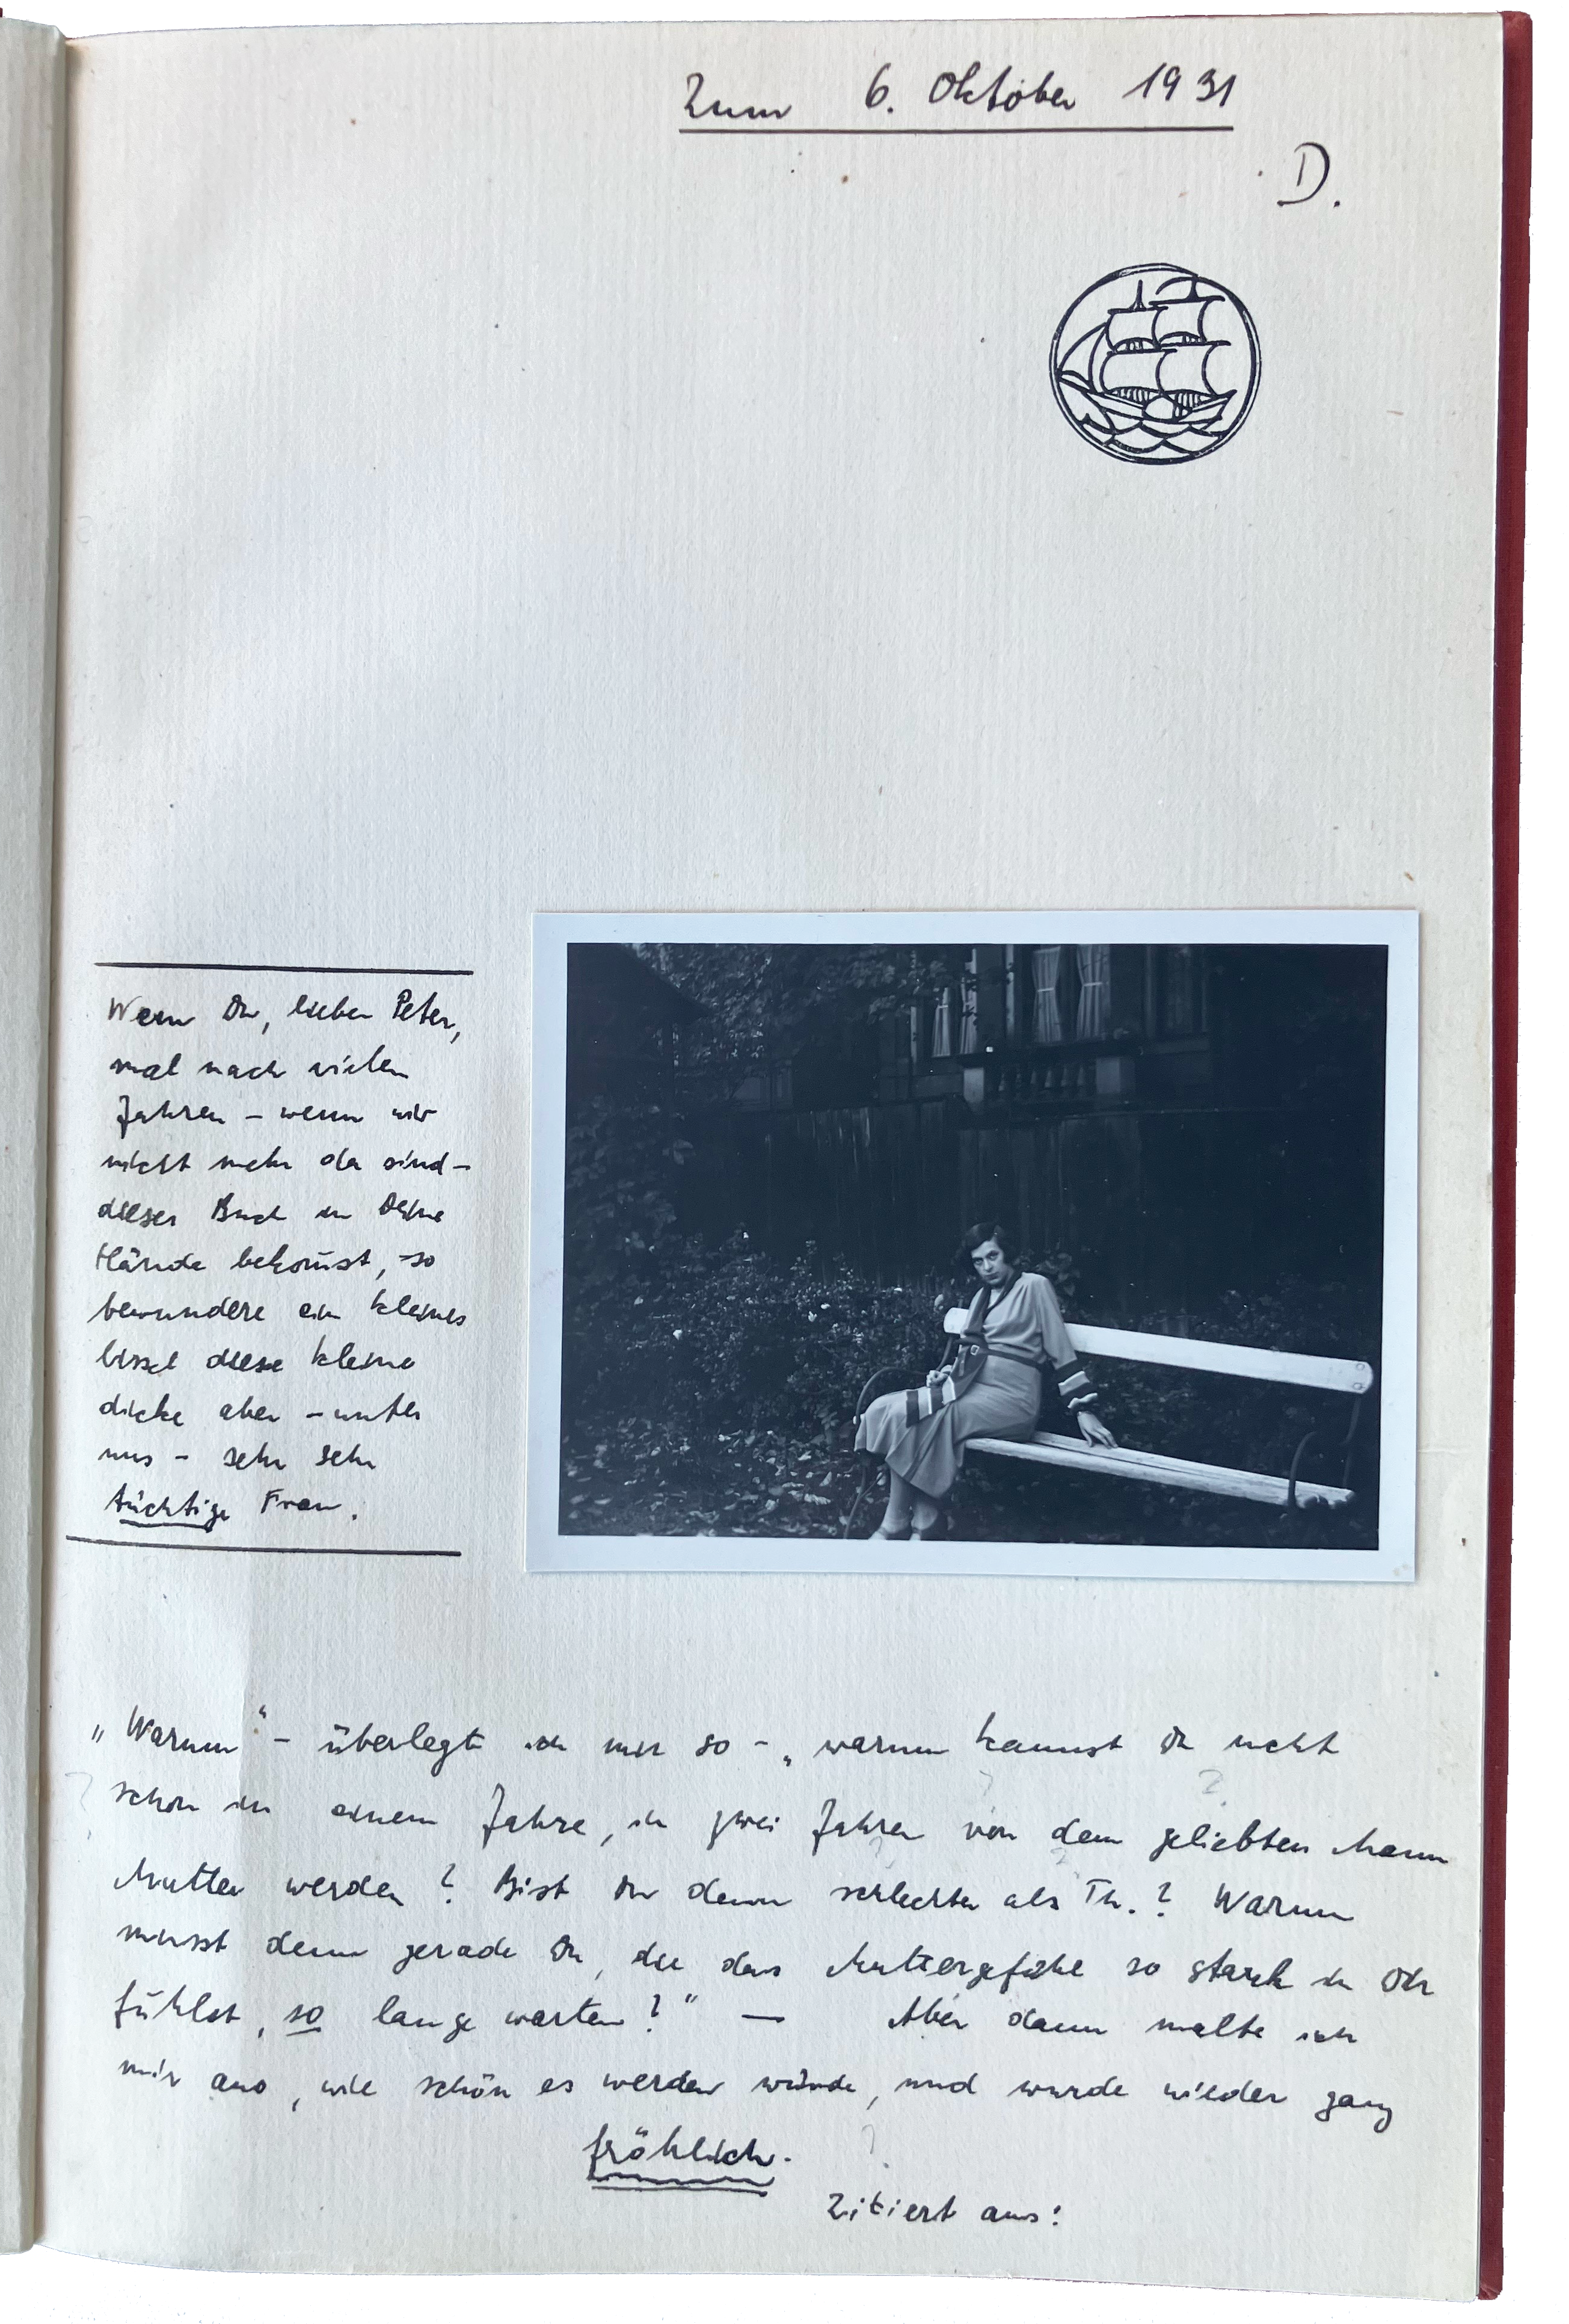 Zum 6. Oktober 1931
D.
Wenn Du, lieber Peter,
mal nach vielen
Jahren – wenn wir
nicht mehr da sind –
dieses Buch in Deine
Hände bekom̄st, so
bewundere ein kleines
bissel diese kleine
dicke aber – unter
uns – sehr sehr
tüchtige Frau.
„Warum“ – überlegte ich mir so – „warum kannst Du nicht
schon in einem Jahre, in zwei Jahren von dem geliebten Mann
Mutter werden? Bist Du denn schlechter als Th.? Warum
musst denn gerade Du, die das Muttergefühl so stark in Dir
fühlst, so lange warten?“ — Aber dann malte ich
mir aus, wie schön es werden würde, und wurde wieder ganz
fröhlich.
Zitiert aus: